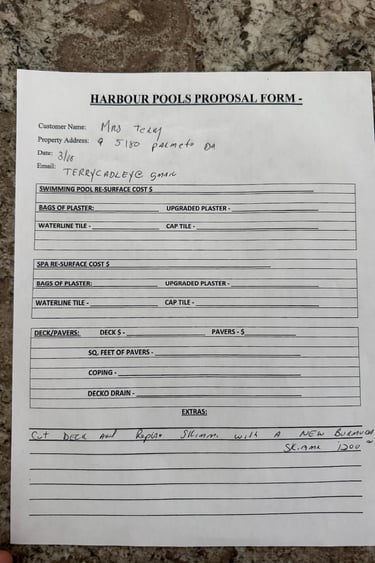 HARBOUR POOLS PROPOSAL FORM -
Customer Name: Mrs Terry
Property Address: 9 5180 Palmeto DR
Date: 3/18
Email: TERRYCADLEY@ gmail
SWIMMING POOL RE-SURFACE COST $
BAGS OF PLASTER: UPGRADED PLASTER -
WATERLINE TILE - CAP TILE -
SPA RE-SURFACE COST $
BAGS OF PLASTER: UPGRADED PLASTER -
WATERLINE TILE - CAP TILE -
DECK/PAVERS: DECK $ - PAVERS - $
SQ. FEET OF PAVERS -
COPING -
DECKO DRAIN -
EXTRAS:
Cut Deck and Replace Skimmer with A NEW
Skimmer 1200